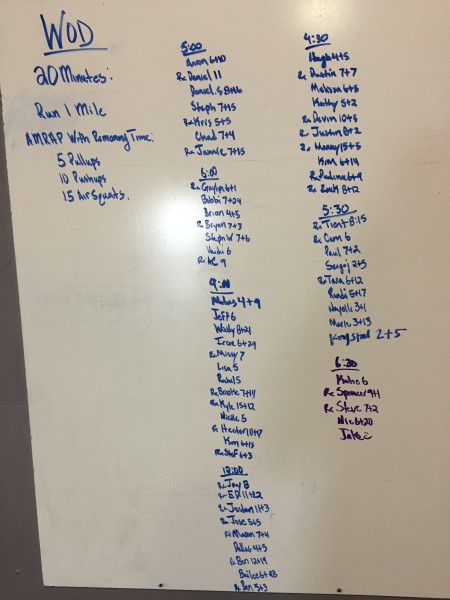 WOD
20 Minutes:
Run 1 Mile
AMRAP With Remaining Time:
5 Pullups
10 Pushups
15 Air Squats.
5:00
Aaron 6+10
Rx Daniel 11
Daniel.S 8+16
Steph 7+15
Rx Kris 5+5
Chad 7+4
Rx Jamie 7+15
6:00
Rx Graylin 6+1
Bobbi 7+24
Brian 4+5
Rx Bryan 7+3
Steph W 7+6
Heidi 6
Rx AC 9
9:00
4+9
Jeff 6
Woody 8+21
Irene 6+24
Rx Missy 7
Lisa 5
5
Rx Brooke 7+14
Rx Kyle 15+12
Nicole 5
Rx Hector 10+7
Kim 6+15
Rx Stef 6+3
12:00
Rx Jay 8
Rx Ed 11+22
Rx Jordan 11+3
Rx Jose 5+5
Rx 7+4
Dallas 4+5
Ben 12+19
Bailee 6+28
Rx 5+3
4:30
Hugh 4+5
Rx Dustin 7+7
Melissa 6+5
Kathy 5+2
Rx Davin 10+5
Rx Justin 8+2
Rx Manny 15+5
Kim 6+14
Rx Paulina 6+9
Rx Zack 8+12
5:30
Rx Trent 8:15
Rx Cam 6
Paul 7+2
Sergej 2+5
Rx Tara 6+12
Randi 5+17
Nayelli 3+1
Marie 3+13
2+5
6:30
Katie 6
Rx Spencer 9+1
Rx Steve 7+2
Nic 6+20
Jake